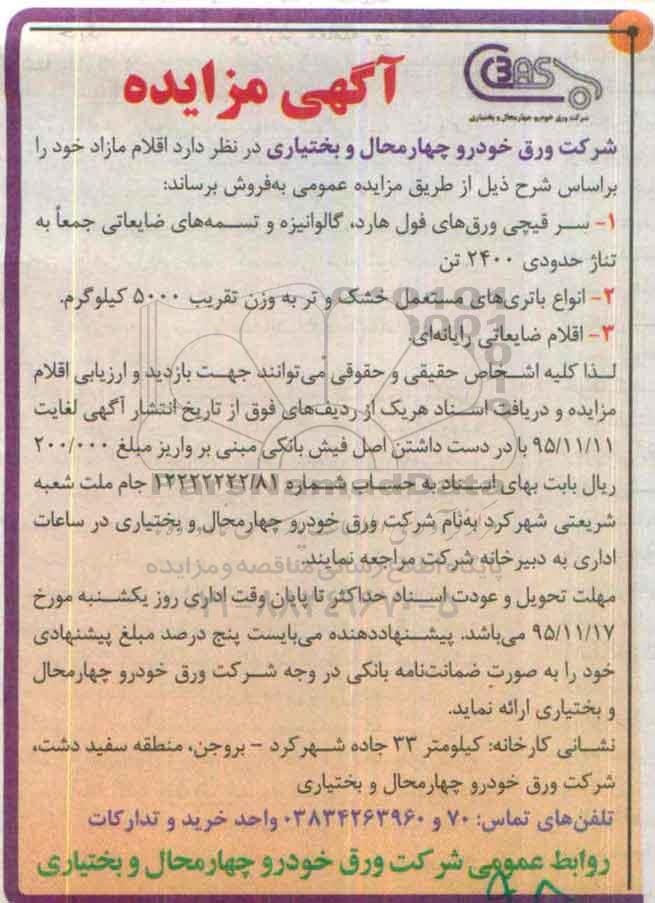 C3AS
شرکت ورق خودرو چهارمحال و بختیاری
آگهی مزایده
شرکت ورق خودرو چهارمحال و بختیاری در نظر دارد اقلام مازاد خود را
براساس شرح ذیل از طریق مزایده عمومی به‌فروش برساند:
۱- سر قیچی ورق‌های فول هارد، گالوانیزه و تسمه‌های ضایعاتی جمعاً به
تناژ حدودی ۲۴۰۰ تن
۲- انواع باتری‌های مستعمل خشک و تر به وزن تقریب ۵۰۰۰ کیلوگرم.
۳- اقلام ضایعاتی رایانه‌ای.
لذا کلیه اشخاص حقیقی و حقوقی می‌توانند جهت بازدید و ارزیابی اقلام
مزایده و دریافت اسناد هریک از ردیف‌های فوق از تاریخ انتشار آگهی لغایت
۹۵/۱۱/۱۱ با در دست داشتن اصل فیش بانکی مبنی بر واریز مبلغ ۲۰۰/۰۰۰
ریال بابت بهای اسناد به حساب شماره ۱۲۲۲۲۲۲۲/۸۱ جام ملت شعبه
شریعتی شهرکرد به‌نام شرکت ورق خودرو چهارمحال و بختیاری در ساعات
اداری به دبیرخانه شرکت مراجعه نمایند.
مهلت تحویل و عودت اسناد حداکثر تا پایان وقت اداری روز یکشنبه مورخ
۹۵/۱۱/۱۷ می‌باشد. پیشنهاددهنده می‌بایست پنج درصد مبلغ پیشنهادی
خود را به صورت ضمانت‌نامه بانکی در وجه شرکت ورق خودرو چهارمحال
و بختیاری ارائه نماید.
نشانی کارخانه: کیلومتر ۳۳ جاده شهرکرد - بروجن، منطقه سفید دشت،
شرکت ورق خودرو چهارمحال و بختیاری
تلفن‌های تماس: ۷۰ و ۰۳۸۳۴۲۶۳۹۶۰ واحد خرید و تدارکات
روابط عمومی شرکت ورق خودرو چهارمحال و بختیاری
ParsNamadData
پایگاه اطلاع رسانی مناقصه و مزایده